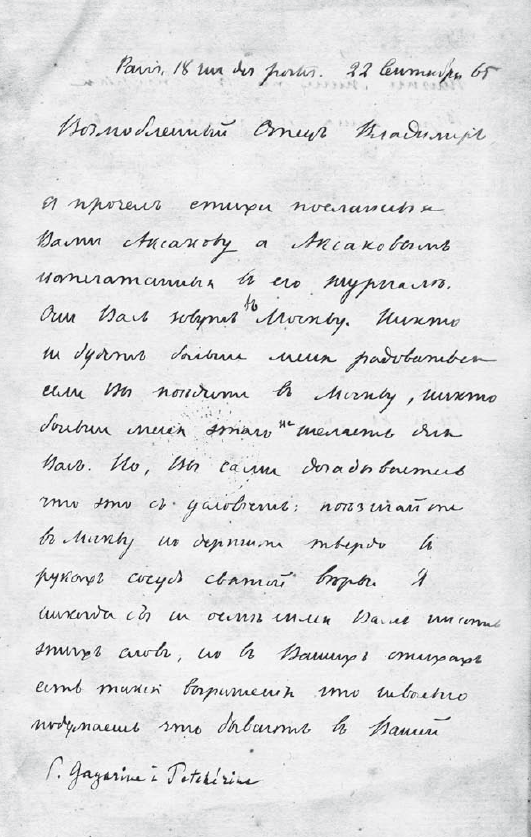 Paris, 18 rue des postes. 22 Сентября 65
Возлюбленный Отецъ Владимиръ
Я прочелъ стихи посланные
Вами Аксакову а Аксаковымъ
напечатанныя въ его журналѣ.
Они Васъ зовутъ въ Москву. Никто
не будетъ больше меня радоваться
если Вы поѣдите въ Москву, никто
больше меня этого не желаетъ для
Васъ. Но, Вы сами догадываетесь
что это съ условіемъ: поѣзжайте
въ Москву но держите твердо въ
рукахъ сосудъ святой вѣры. Я
никогда бъ не осмѣлился Вамъ писать
этихъ словъ, но въ Вашихъ стихахъ
есть такія выраженія что невольно
подумаешь что бываютъ въ Вашей
P. Gagarine à Petchérine